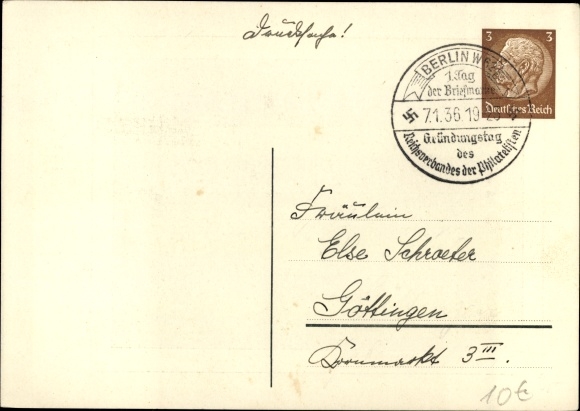 Drucksache!
3 3
Deutsches Reich
BERLIN W
1. Tag
der Briefmarke
7.1.36.19
Gründungstag
des
Reichsverbandes der Philatelisten
Fräulein
Else Schroeter
Göttingen
Kornmarkt 3III.
10€